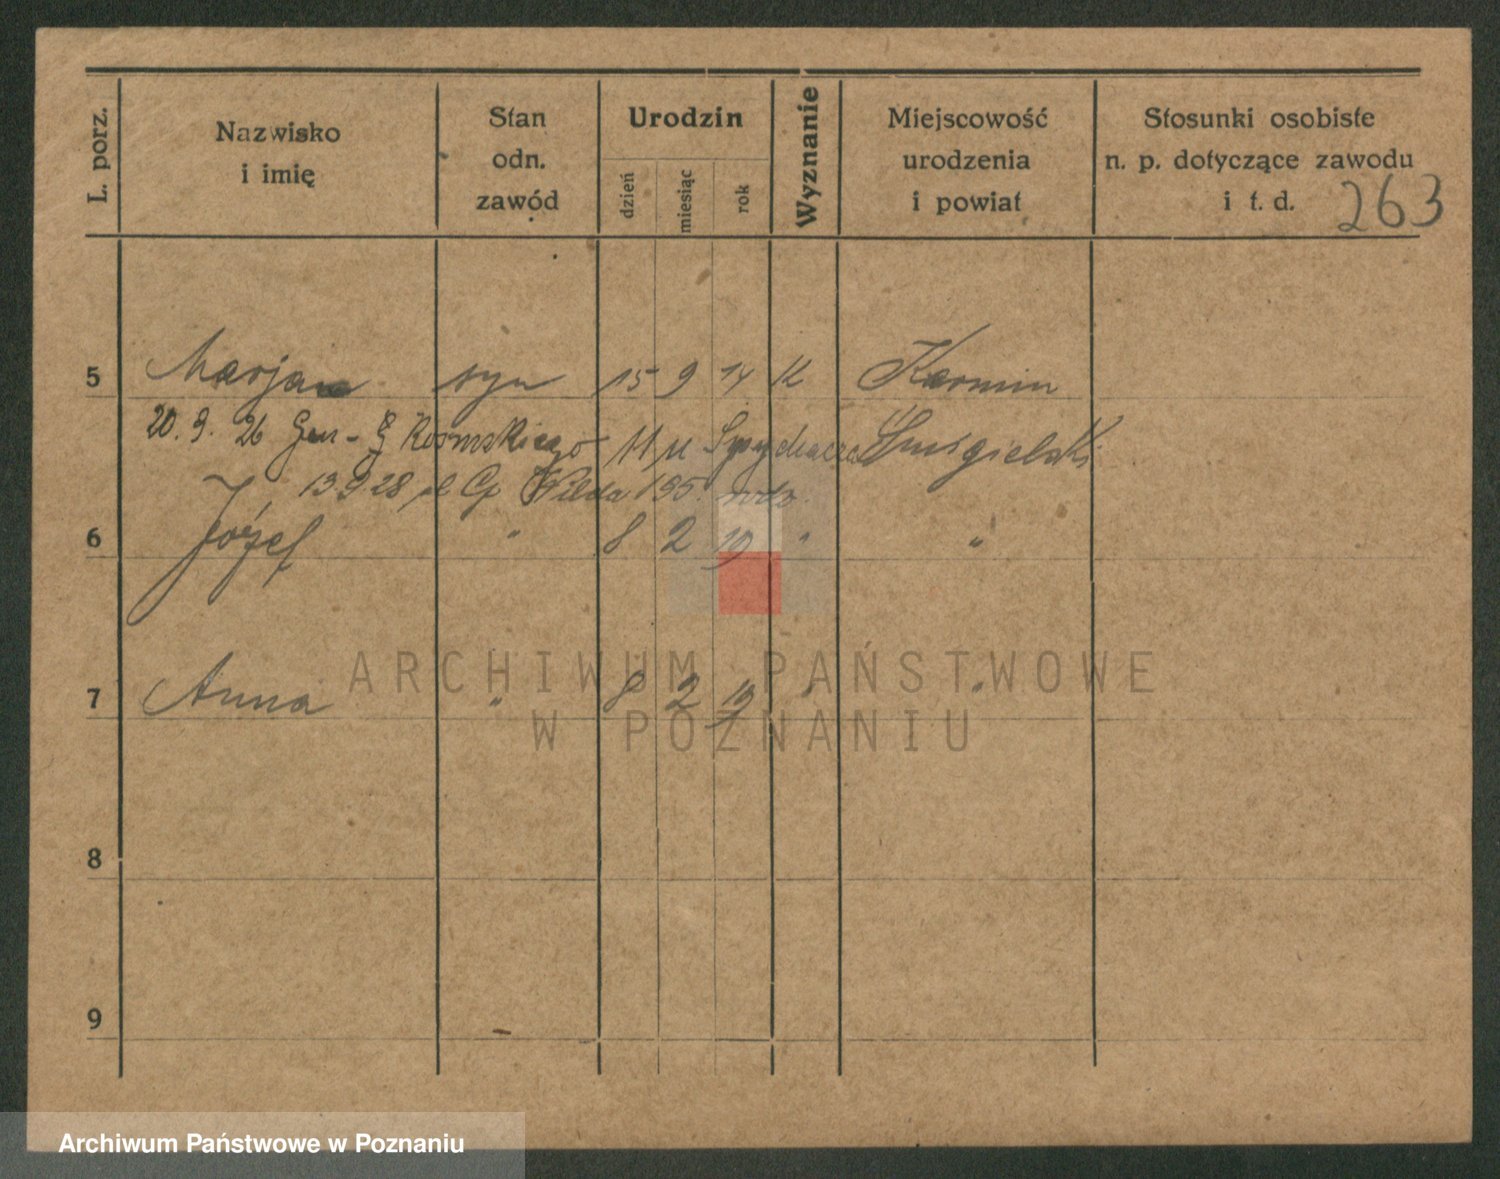 L. porz.
Nazwisko
i imię
Stan
odn.
zawód
Urodzin
dzień
miesiąc
rok
Wyznanie
Miejscowość
urodzenia
i powiat
Stosunki osobiste
n. p. dotyczące zawodu
i t. d.
263
5 Marjan syn 15 9 14 K Karmin
20. 9. 26 Gen- 11 u Śmigielski
13 9 28 Wilda 155.
6 Józef " 8 2 19 " "
7 Anna " 8 2 19 " "
8
9
ARCHIWUM PAŃSTWOWE
W POZNANIU
Archiwum Państwowe w Poznaniu